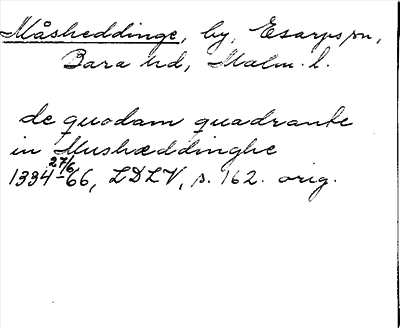 Måsheddinge, by, Esarps sn,
Bara hd, Malm. l.
de quodam quadrante
in Mushæddinghe
27/6
1334-66, LDLV, s. 162. orig.